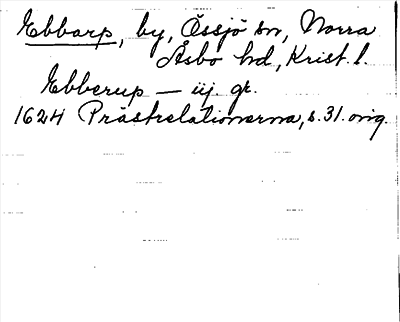 Ebbarp, by, Össjö sn, Norra
Åsbo hd, Krist. l.
Ebberup — üj. gr.
1624 Prästrelationerna, s. 31. orig.